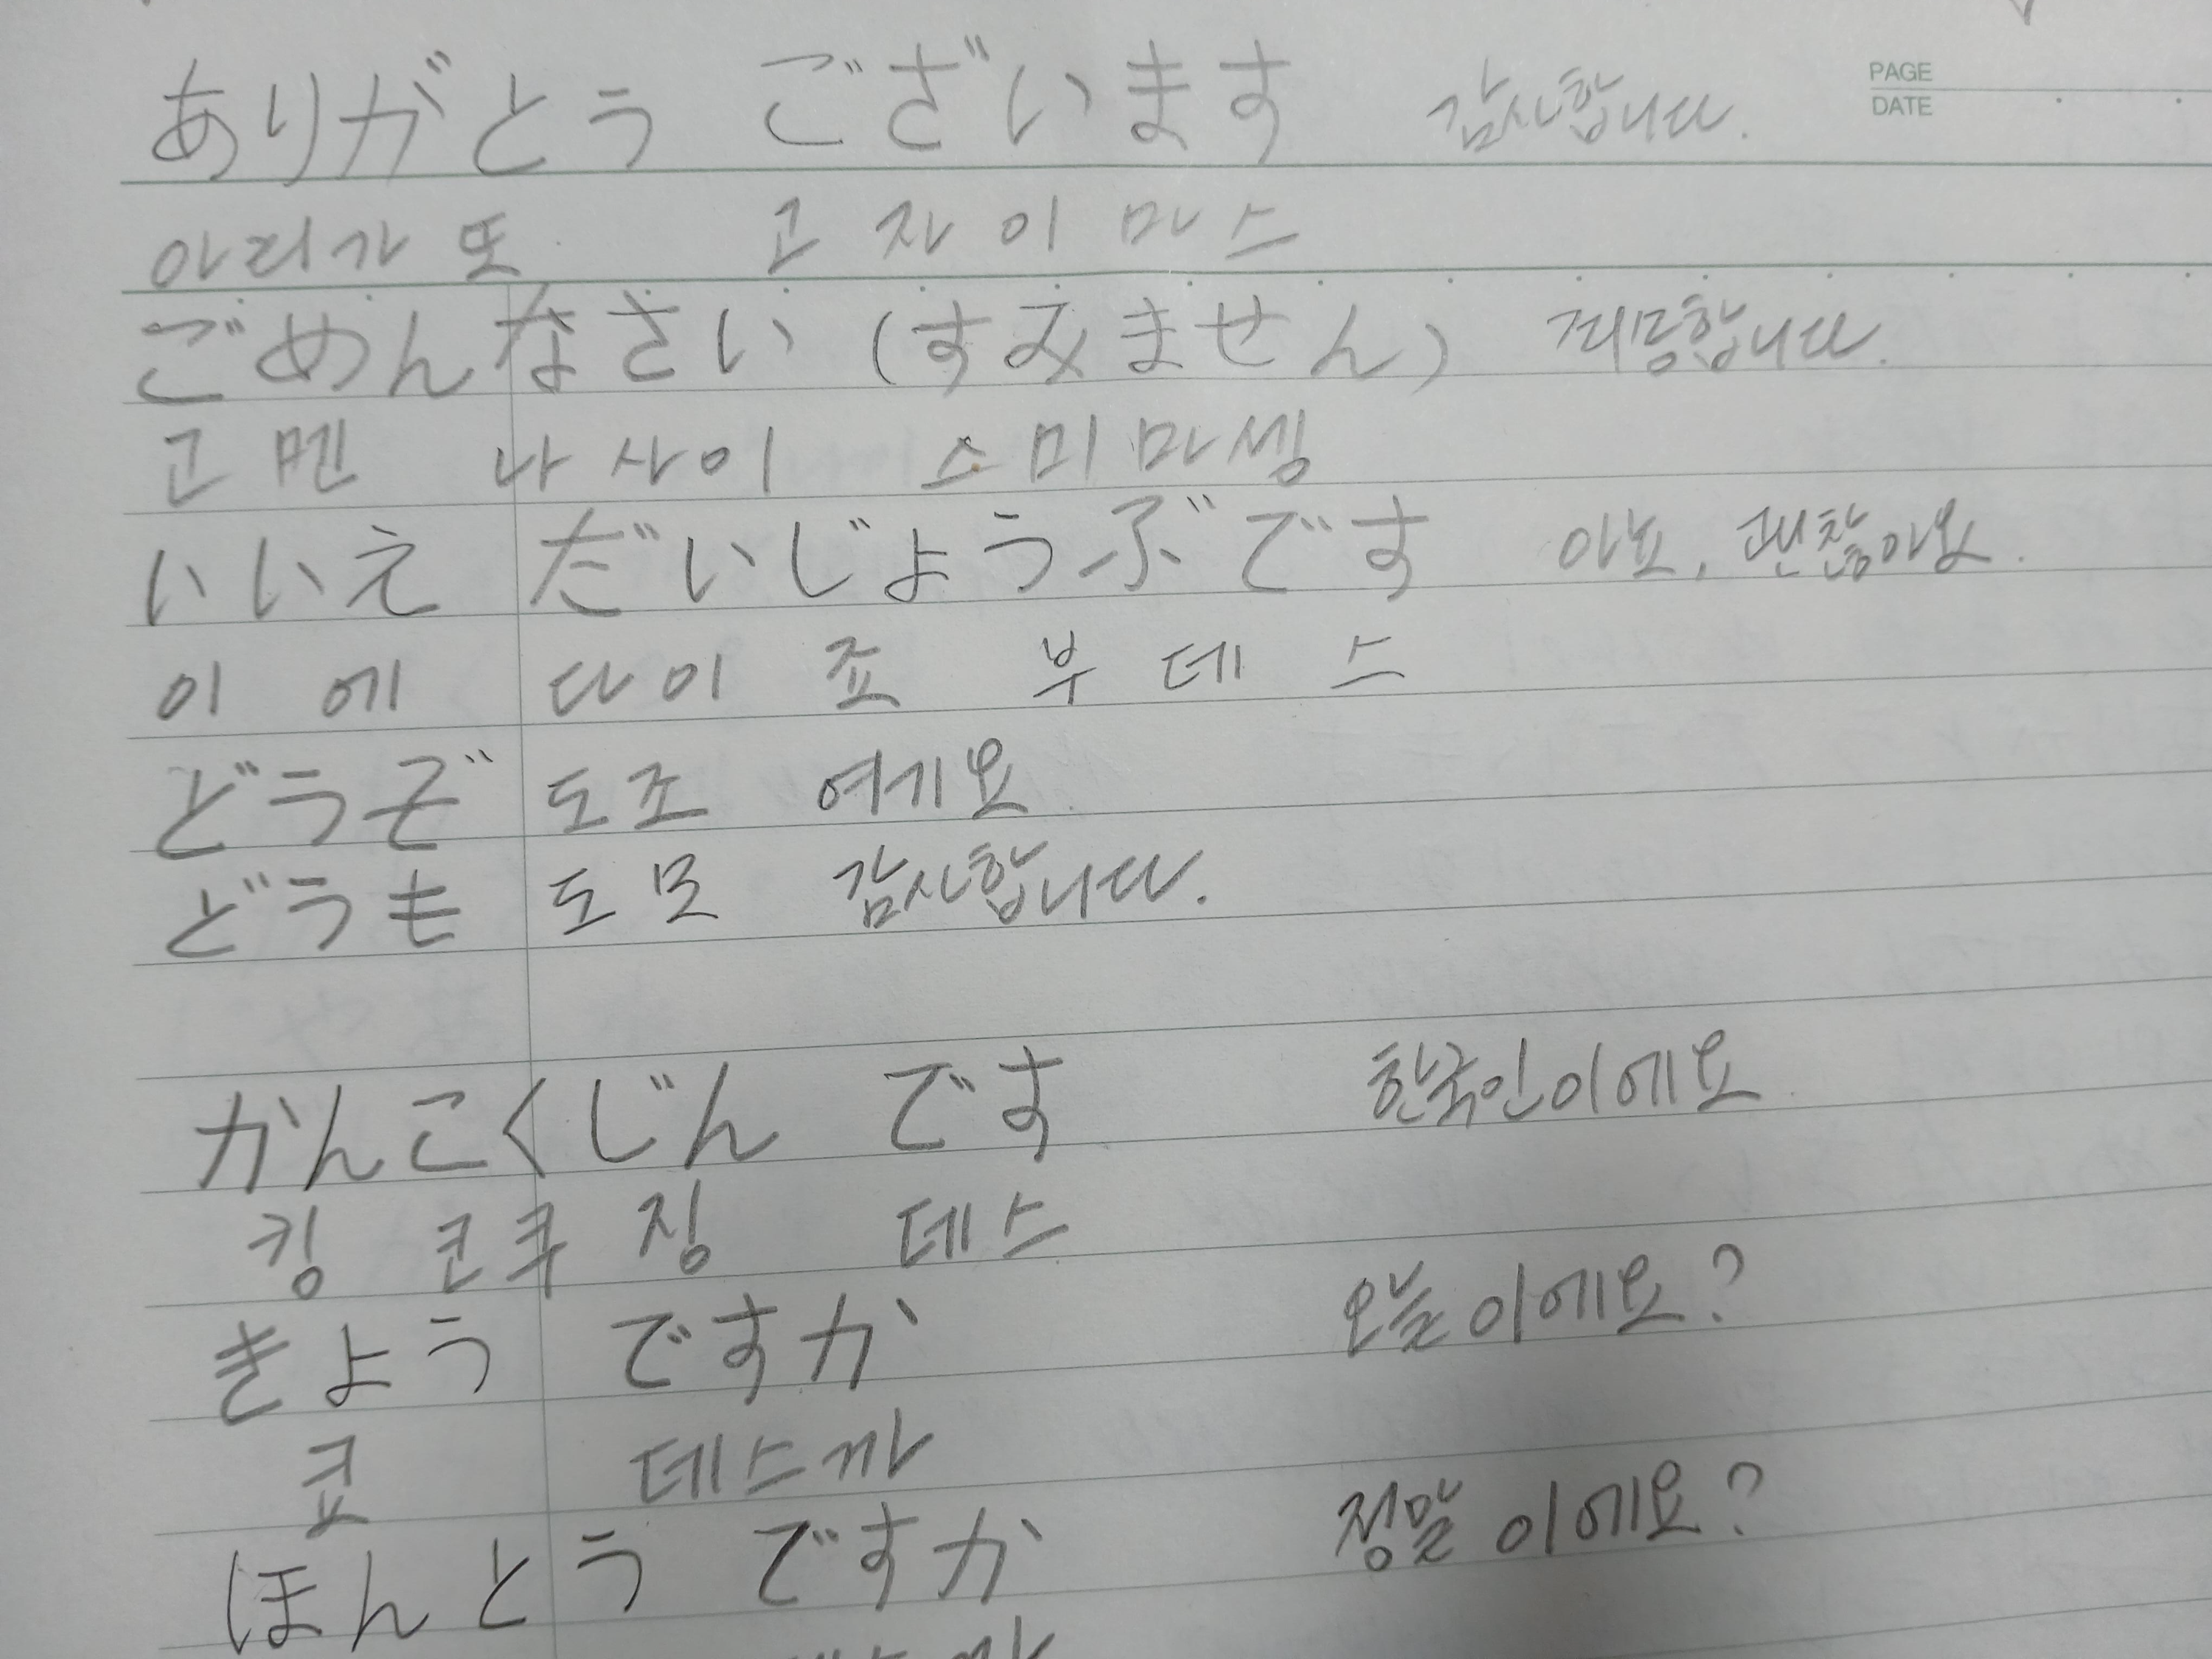 PAGE
DATE
ありがとう ございます 감사합니다.
아리가또 고자이마스
ごめんなさい (すみません) 죄송합니다.
고멘 나사이 스미마셍
いいえ だいじょうぶです 아뇨, 괜찮아요.
이에 다이죠부데스
どうぞ 도조 여기요
どうも 도모 감사합니다.
かんこくじん です 한국인이에요
캉코쿠징 데스
きょう ですか 오늘이에요?
쿄 데스까
ほんとう ですか 정말 이에요?